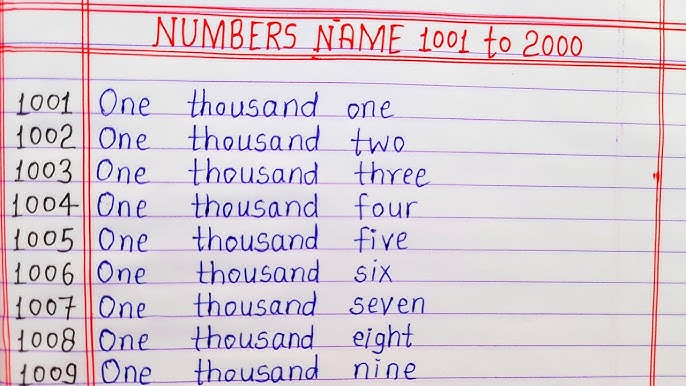 NUMBERS NAME 1001 to 2000
1001 One thousand one
1002 One thousand two
1003 One thousand three
1004 One thousand four
1005 One thousand five
1006 One thousand six
1007 One thousand seven
1008 One thousand eight
1009 One thousand nine